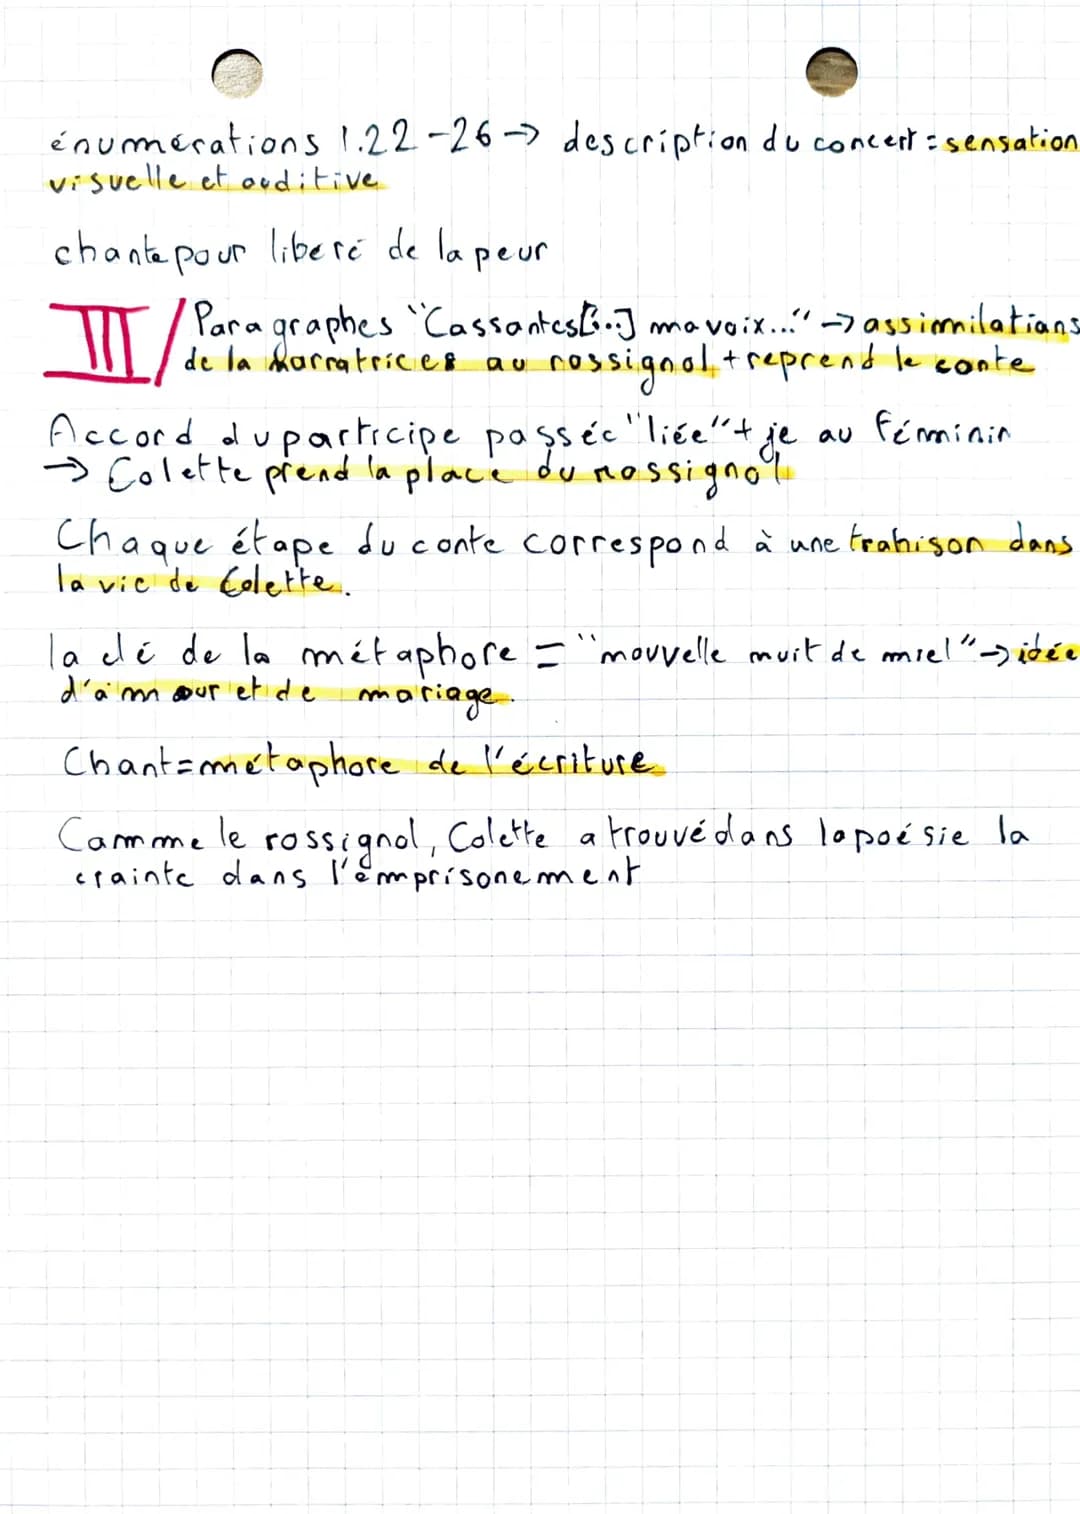 énumérations l.22-26 → description du concert = sensation
visuelle et auditive
chante pour liberé de la peur
III/ Paragraphes "Cassantes[...] ma voix..." → assimilations
de la narratrices au rossignol + reprend le conte
Accord du participe passée "liée" + je au féminin
→ Colette prend la place du rossignol
Chaque étape du conte correspond à une trahison dans
la vie de Colette.
la clé de la métaphore = "nouvelle nuit de miel" → idée
d'amour et de mariage.
Chant = métaphore de l'écriture
Comme le rossignol, Colette a trouvé dans la poésie la
crainte dans l'emprisonement